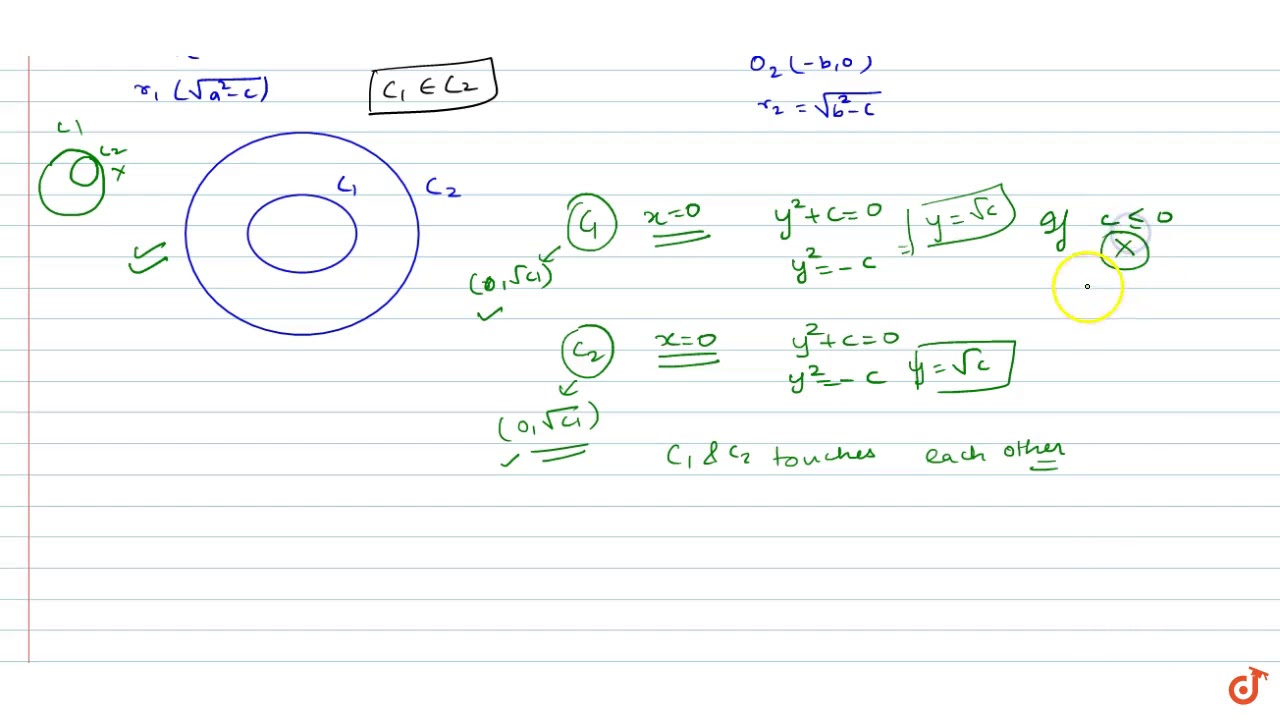 r₁ (√a²-c)
C₁ ∈ C₂
O₂ (-b,0)
r₂ = √b²-c
C1
C2
X
C₁
C₂
C₁ x=0 y²+c=0 = y=√c If c ≤ 0
y²=-c X
(0,√c₁)
C₂ x=0 y²+c=0
y²=-c y=√c
(0,√c₁)
C₁ & C₂ touches each other